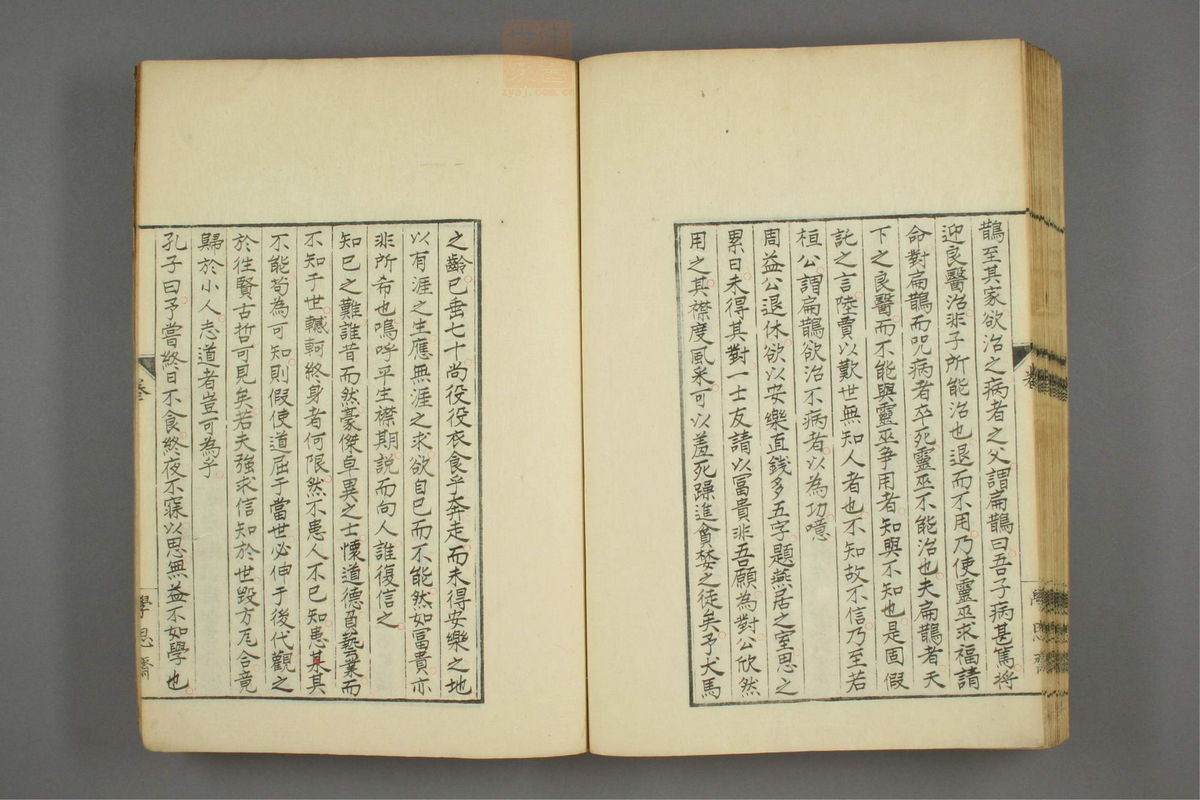 鵲至其家欲治之病者之父謂扁鵲曰吾子病甚篤將
迎良醫治非子所能治也退而不用乃使靈巫求福請
命對扁鵲而咒病者卒死靈巫不能治也夫扁鵲者天
下之良醫而不能與靈巫爭用者知與不知也是固假
託之言陸賈以歎世無知人者也不知故不信乃至若
桓公謂扁鵲欲治不病者以為功噫
周益公退休欲以安樂直錢多五字題燕居之室思之
累日未得其對一士友請以冨貴非吾願為對公欣然
用之其襟度風采可以羞死躁進貪婪之徒矣予犬馬
之齡已垂七十尚役役衣食乎奔走而未得安樂之地
以有涯之生應無涯之求欲自已而不能然如冨貴亦
非所希也嗚呼平生襟期說而向人誰復信之
知已之難誰昔而然豪傑卓異之士懷道德負藝業而
不知于世轗軻終身者何限然不患人不已知患某其
不能苟為可知則假使道屈于當世必伸于後代觀之
於往賢古哲可見矣若夫強求信知於世毀方瓦合竟
歸於小人志道者豈可為乎
孔子曰予嘗終日不食終夜不寐以思無益不如學也
卷
學思齋
zysj.com.cn